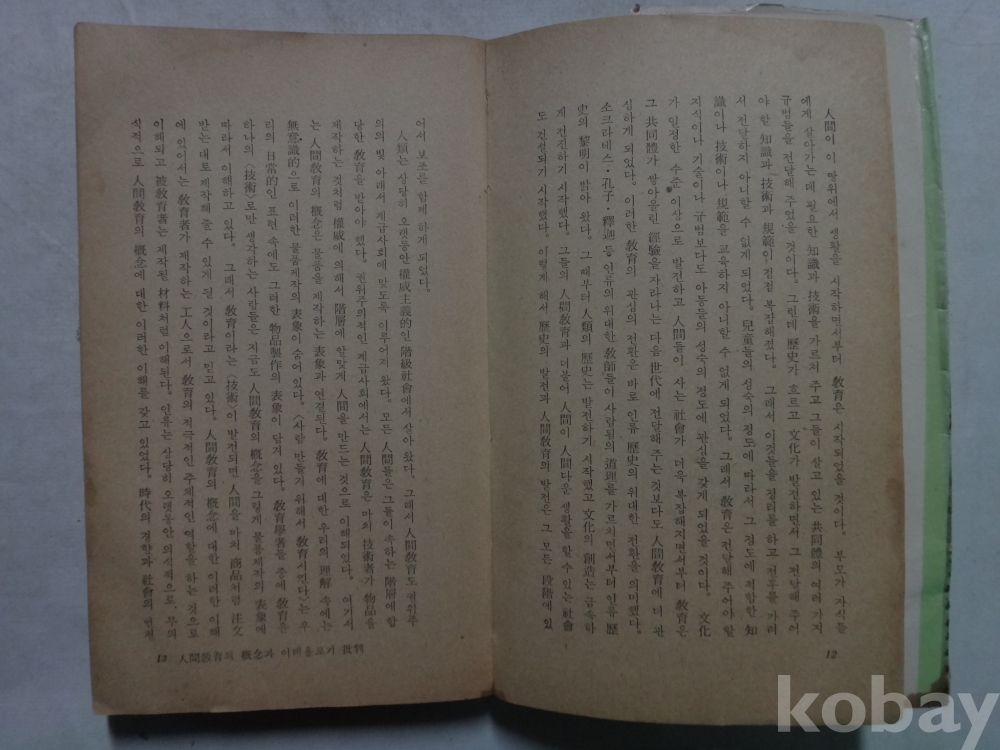 人間이 이 땅위에서 생활을 시작하면서부터 敎育은 시작되었을 것이다. 부모가 자식들
에게 살아가는 데 필요한 知識과 技術을 가르쳐 주고 그들이 살고 있는 共同體의 여러 가지
규범들을 전달해 주었을 것이다. 그런데 歷史가 흐르고 文化가 발전하면서 그 전달해 주어
야할 知識과 技術과 規範이 점점 복잡해졌다. 그래서 이것들을 정리를 하고 전후를 가려
서 전달하지 아니할 수 없게 되었다. 兒童들의 성숙의 정도에 따라서 그 정도에 적합한 知
識이나 技術이나 規範을 교육하지 아니할 수 없게 되었다. 그래서 敎育은 전달해 주어야 할
지식이나 기술이나 규범보다도 아동들의 성숙의 정도에 관심을 갖게 되었을 것이다. 文化
가 일정한 수준 이상으로 발전하고 人間들이 사는 社會가 더욱 복잡해지면서부터 敎育은
그 共同體가 쌓아올린 經驗을 자라나는 다음 世代에 전달해 주는 것보다도 人間敎育에 더 관
심하게 되었다. 이러한 敎育의 관심의 전환은 바로 인류 歷史의 위대한 전환을 의미했다.
소크라테스·孔子·釋迦 등 인류의 위대한 敎師들이 사람됨의 道理를 가르치면서부터 인류 歷
史의 黎明이 밝아 왔다. 그 때부터 人類의 歷史는 발전하기 시작했고 文化의 創造는 급속하
게 전진하기 시작했다. 그들의 人間敎育과 더불어 人間이 人間다운 생활을 할 수 있는 社會
도 건설되기 시작했다. 이렇게 해서 歷史의 발전과 人間敎育의 발전은 그 모든 段階에 있
12
어서 보조를 함께 하게 되었다.
人類는 상당히 오랫동안 權威主義的인 階級社會에서 살아 왔다. 그래서 人間敎育도 권위주
의의 빛 아래서 계급사회에 맞도록 이루어져 왔다. 모든 人間들은 그들이 속하는 階層에 합
당한 敎育을 받아야 했다. 권위주의적인 계급사회에서는 人間敎育은 마치 技術者가 物品을
제작하는 것처럼 權威에 의해서 階層에 알맞게 人間을 만드는 것으로 이해되었다. 여기서
는 人間敎育의 槪念은 물품을 제작하는 表象과 연결된다. 敎育에 대한 우리의 理解 속에는
無意識的으로 이러한 물품제작의 表象이 숨어 있다. 〈사람 만들기 위해서 敎育시킨다〉는 우
리의 日常的인 표현 속에도 그러한 物品製作의 表象이 담겨 있다. 敎育學者들 중에 敎育을
하나의 〈技術〉로만 생각하는 사람들은 지금도 人間敎育의 槪念을 그렇게 물품제작의 表象에
따라서 이해하고 있다. 그래서 敎育이라는 〈技術〉이 발전되면 人間을 마치 商品처럼 注文
받는 대로 제작해 줄 수 있게 될 것이라고 믿고 있다. 人間敎育의 槪念에 대한 이러한 이해
에 있어서는 敎育者가 제작하는 工人으로서 敎育의 적극적인 주체적인 역할을 하는 것으로
이해되고 被敎育者는 제작될 材料처럼 이해된다. 인류는 상당히 오랫동안 의식적으로, 무의
식적으로 人間敎育의 槪念에 대한 이러한 이해를 갖고 있었다. 時代의 경향과 社會의 변천
13 人間敎育의 槪念과 이데올로기 批判
kobay